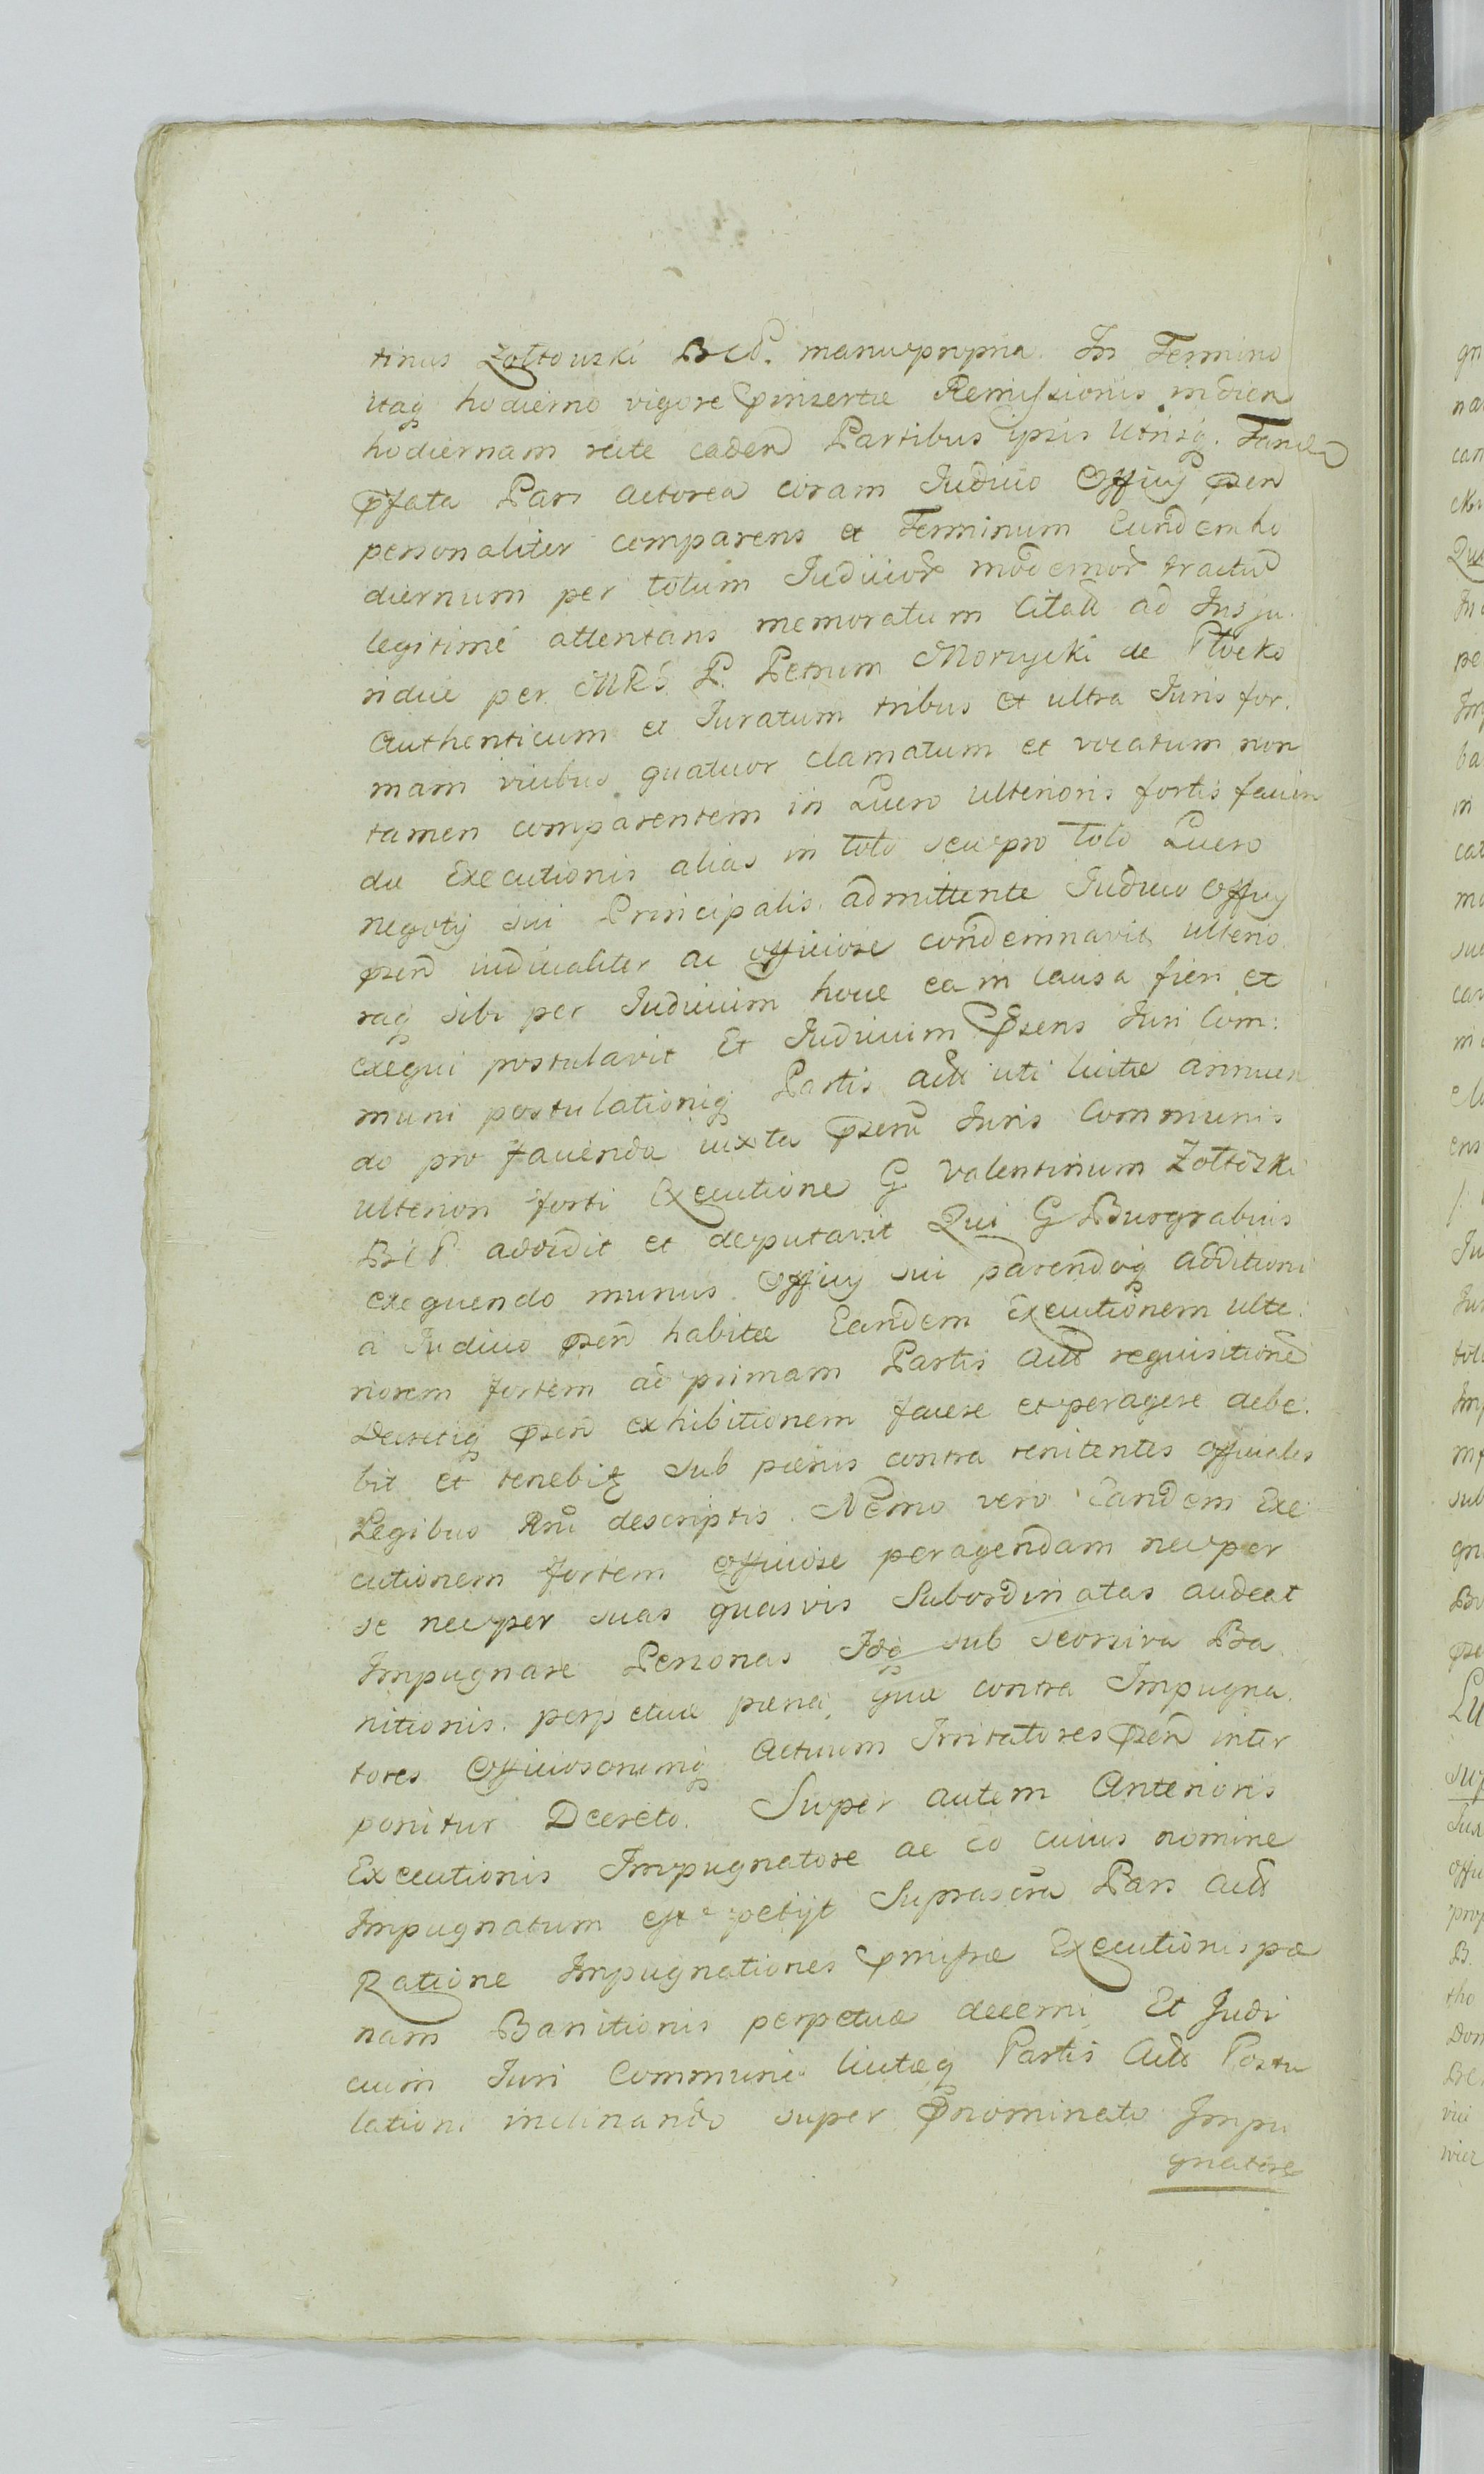 tinus Zołtowski BCP. manu propria. In Termino
itaq hodierno vigore p̄insertæ Remissionis in diem
hodiernam rite caden Partibus ipsis Utrisq. Tandē
p̄fata Pars actorea coram Judicio Officy p̄sen
personaliter comparens et Terminum Eundem ho
diernum per totum Judicior modernor tractū
legitimé attentans memoratum Citatt ad Insju
ridice per MRS P. Petrum Morzycki de Płocko
Authenticum et Juratum tribus et ultra Juris for.
mam vicibus quatuor clamatum et vocatum non
tamen comparentem in Lucro ulterioris fortis facien
dæ Executionis alias in toto seu pro Toto Lucro
negotij sui Principalis admittente Judicio Officy
p̄sen iudicialiter ac officiose condemnavit, ulterio
raq sibi per Judicium hocce ea in causa fieri et
exequi postulavit Et Judicium P̄sens Juri Com:
muni postulationiq Partis actt uti licitæ annuen
do pro facienda iuxta p̄scru Juris Communis
ulteriori forti Executione G Valentinum Zołtowski
BCP. addidit et deputavit Qui G Burgrabius
exequendo munus Officy sui parendoq additioni
a Judicio p̄sen habitæ Eandem Executionem ulte:
riorem fortem ad primam Partis Actt requisitionē
Decretiq p̄sen exhibitionem facere et peragere debe:
bit et tenebit sub pænis contra renitentes officiales
Legibus Rni descriptis. Nemo vero Eandem Exe
cutionem fortem officiose peragendam nec per
se nec per suas quasvis Subordinatas audeat
Impugnare Personas Idq sub seorsiva Ba
nitionis perpetuæ pæna, quæ contra Impugna
tores Officiosorumq Actuum Irritatores p̄sen inter
ponitur Decreto. Super autem Anterioris
Executionis Impugnatore ac eo cuius nomine
Impugnatum est petijt Suprascra Pars Actt
Ratione Impugnationes p̄missæ Executionis pæ
nam Banitionis perpetuæ decerni, Et Judi
cium Juri Communi licitæq Partis Actt Postu
lationi inclinando super P̄nominato Impu
gnatore